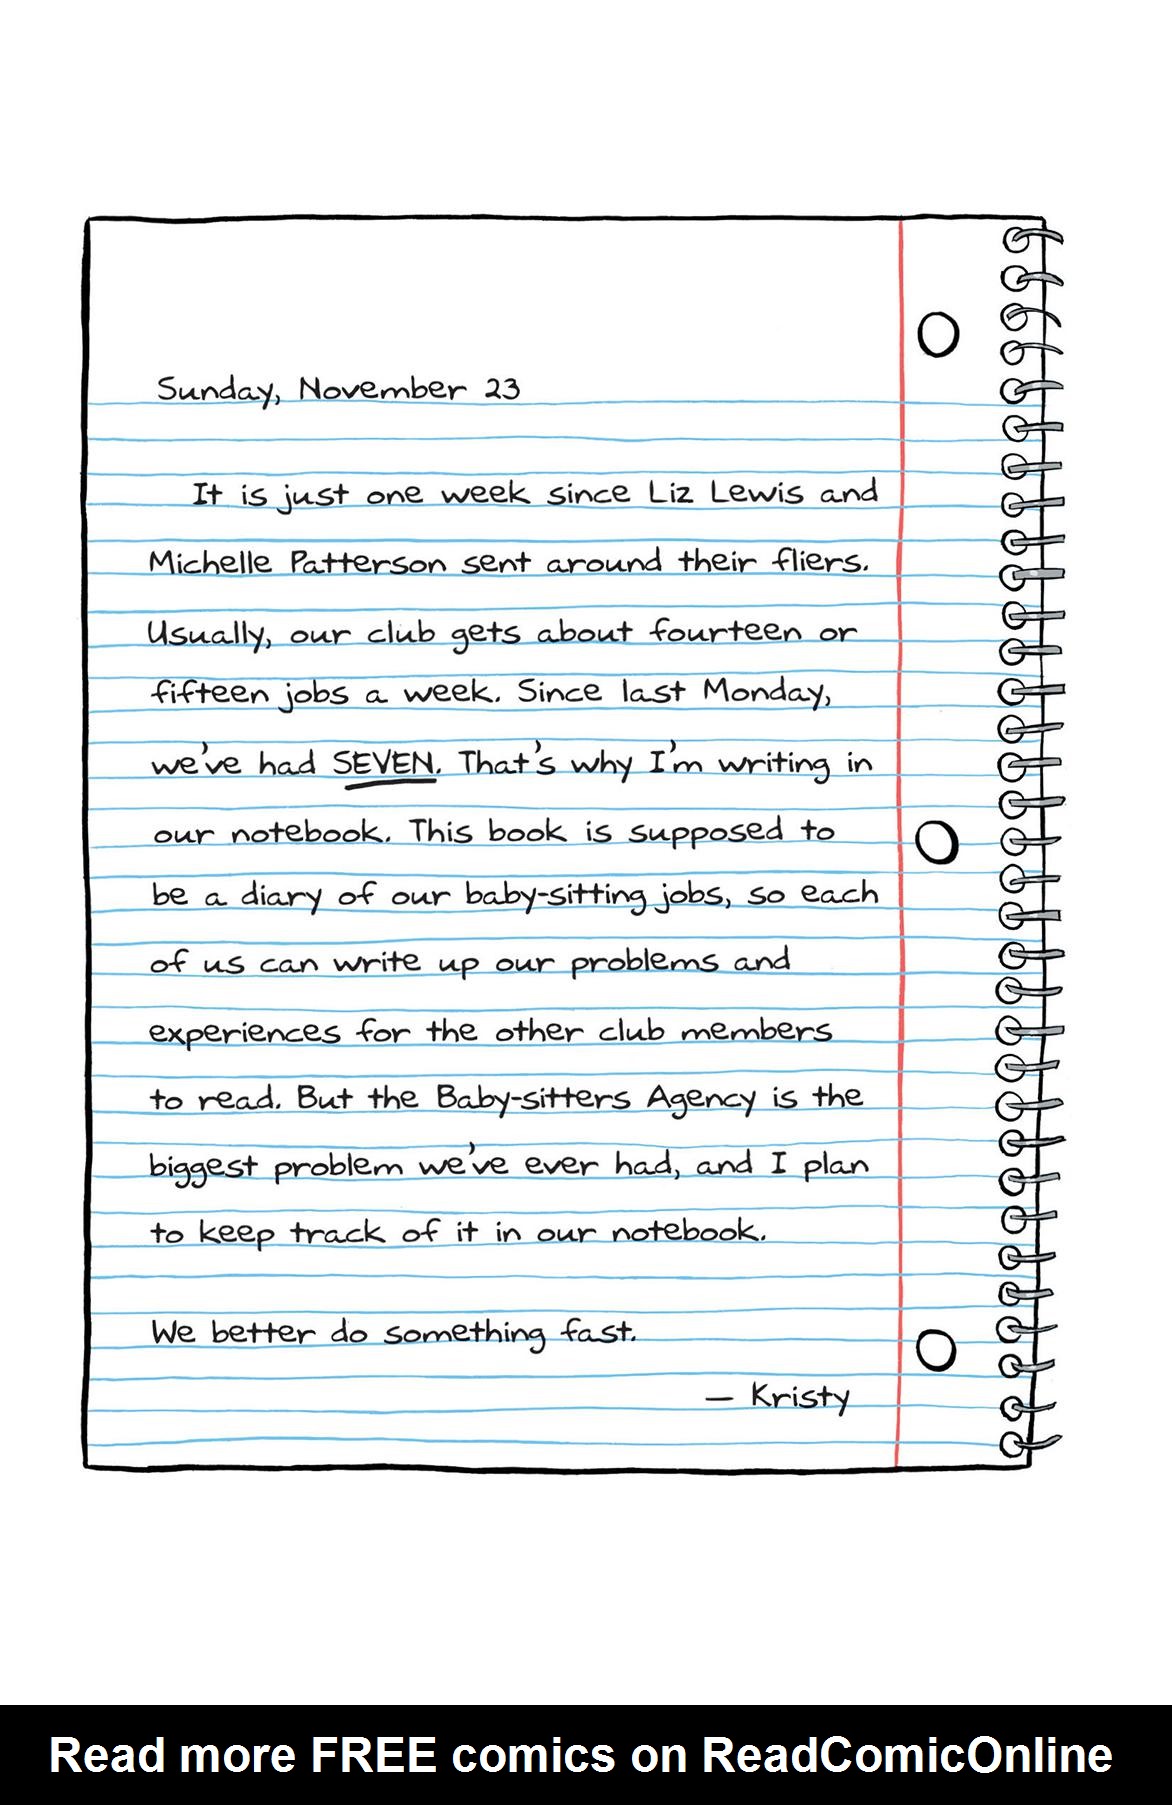 Sunday, November 23
It is just one week since Liz Lewis and
Michelle Patterson sent around their fliers.
Usually, our club gets about fourteen or
fifteen jobs a week. Since last Monday,
we've had SEVEN. That's why I'm writing in
our notebook. This book is supposed to
be a diary of our baby-sitting jobs, so each
of us can write up our problems and
experiences for the other club members
to read. But the Baby-sitters Agency is the
biggest problem we've ever had, and I plan
to keep track of it in our notebook.
We better do something fast.
— Kristy
Read more FREE comics on ReadComicOnline